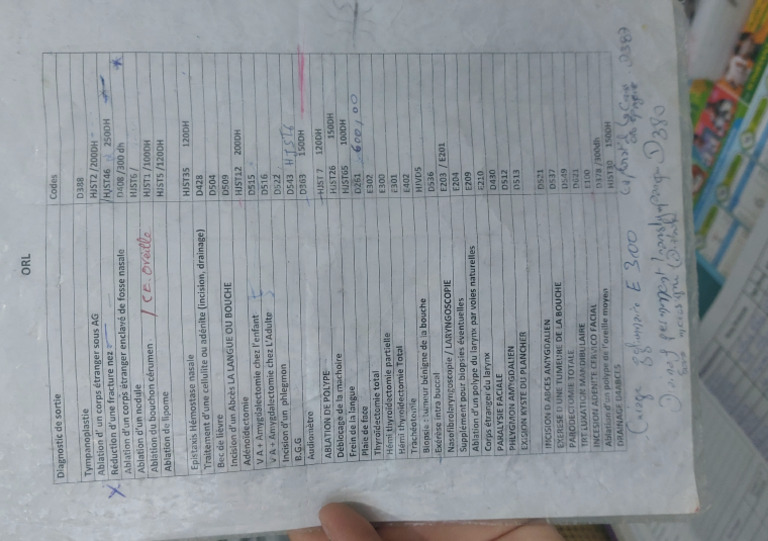 ORL
Diagnostic de sortie Codes
Tympanoplastie D388
Ablation d' un corps étranger sous AG HJST2 / 200DH
Réduction d'une fracture nez HJST46 250DH
Ablation d'un corps étranger enclavé de fosse nasale D408 /300 dh
Ablation d'un nodule HJST6 /
Ablation du bouchon cérumen / C.E. Oreille HJST1 / 100DH
Ablation de lipome HJST5 / 120DH
Epistaxis Hémostase nasale HJST35 120DH
Traitement d'une cellulite ou adénite (incision, drainage) D428
Bec de lièvre D504
D509
Incision d'un Abcès LA LANGUE OU BOUCHE HJST12 200DH
Adénoidectomie D515
V A + Amygdalectomie chez l'enfant D516
V A + Amygdalectomie chez L'Adulte D522
Incision d'un phlegmon D543 HJST6
B.G.G D363 150DH
Audiomètre
ABLATION DE POLYPE HJST 7 120DH
Déblocage de la machoire HJST26 150DH
Frein de la langue HJST65 100DH
Plaie de face D261 600,00
Thyroïdectomie total E302
Hémi thyroïdectomie partielle E300
Hémi thyroïdectomie Total E301
Trachéotomie E402
Biopsie : tumeur bénigne de la bouche HJVD5
Exérèse intra buccal D536
Nasofibrolaryngoscopie / LARYNGOSCOPIE E203 / E201
Supplément pour biopsies éventuelles E204
Ablation d'un polype du larynx par voies naturelles E209
Corps étranger du larynx E210
PARALYSIE FACIALE D430
PHLYGMON AMYGDALIEN D512
EXISION KYSTE DU PLANCHER D513
INCISION ABCES AMYGDALIEN D521
EXERESE D'UNE TUMEURE DE LA BOUCHE D537
PAROIDECTOMIE TOTALE D549
TRT LUXATION MANDIBULAIRE D621
INCESION ADENITE CERVICO FACIAL E100
Ablation d'un polype de l'oreille moyen D378 / 300dh
DRAINAGE DIABETS HJST30 150DH
E 300
D387
D380